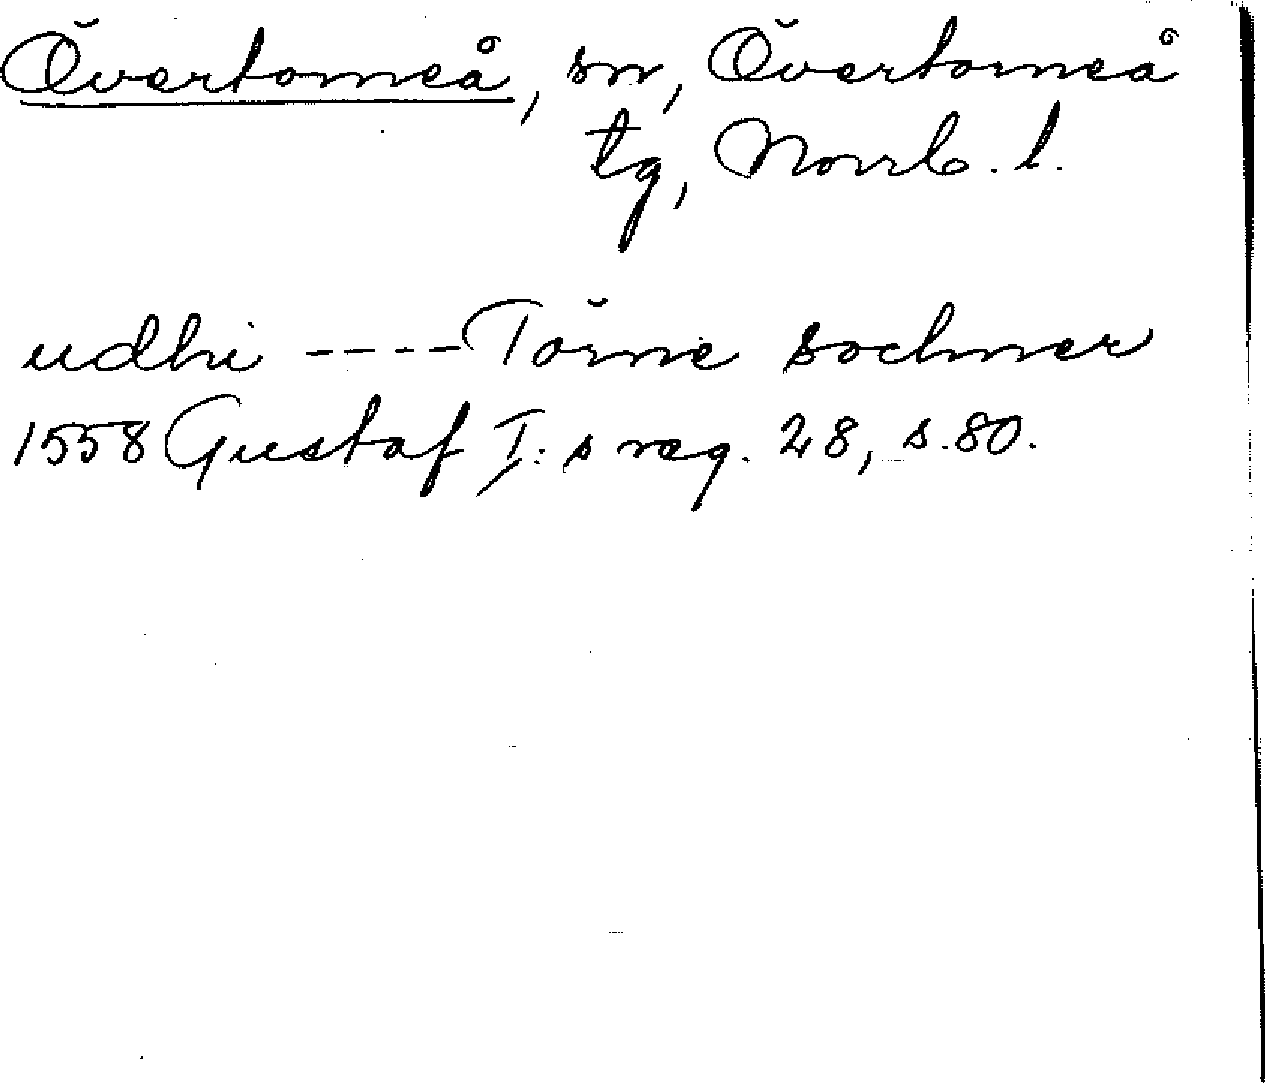 Övertorneå, sn, Övertorneå
tg, Norrb. l.
udhi ---- Törne sochner
1558 Gustaf I:s reg. 28, s. 80.